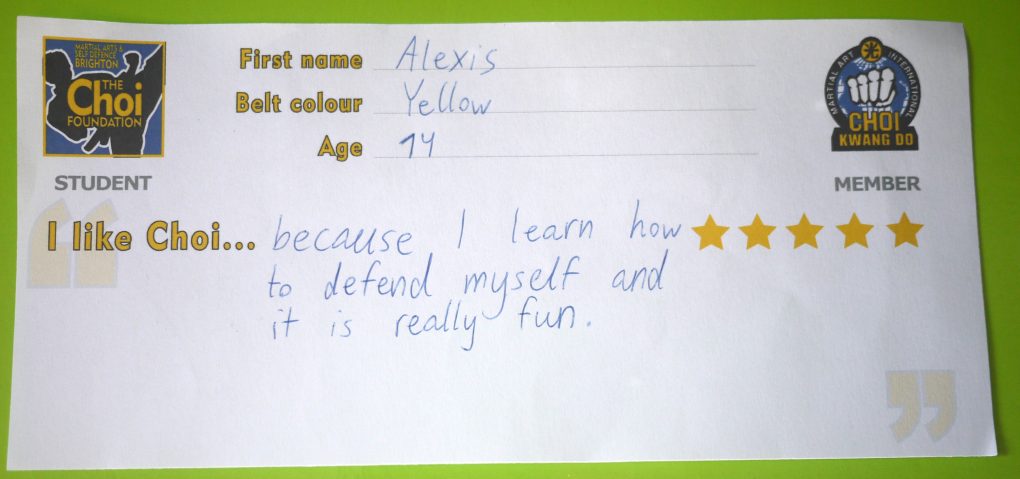 MARTIAL ARTS &
SELF DEFENCE
BRIGHTON
THE
Choi
FOUNDATION
STUDENT
First name Alexis
Belt colour Yellow
Age 14
MARTIAL ART INTERNATIONAL
CHOI
KWANG DO
MEMBER
“
I like Choi... because I learn how
to defend myself and
it is really fun.
”